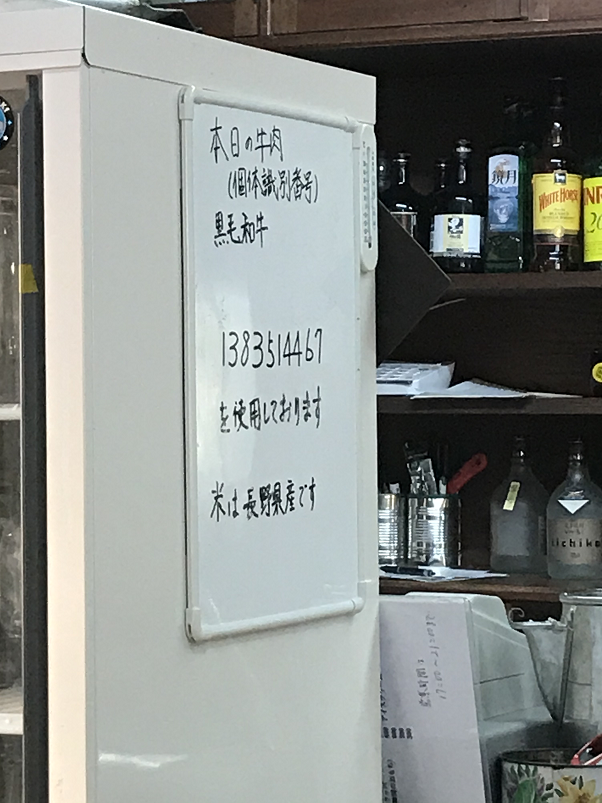 本日の牛肉
(個体識別番号)
黒毛和牛
1383514467
を使用しております
米は長野県産です
鏡月
WHITE HORSE
iichiko
営業時間は
17:00〜21:00まで